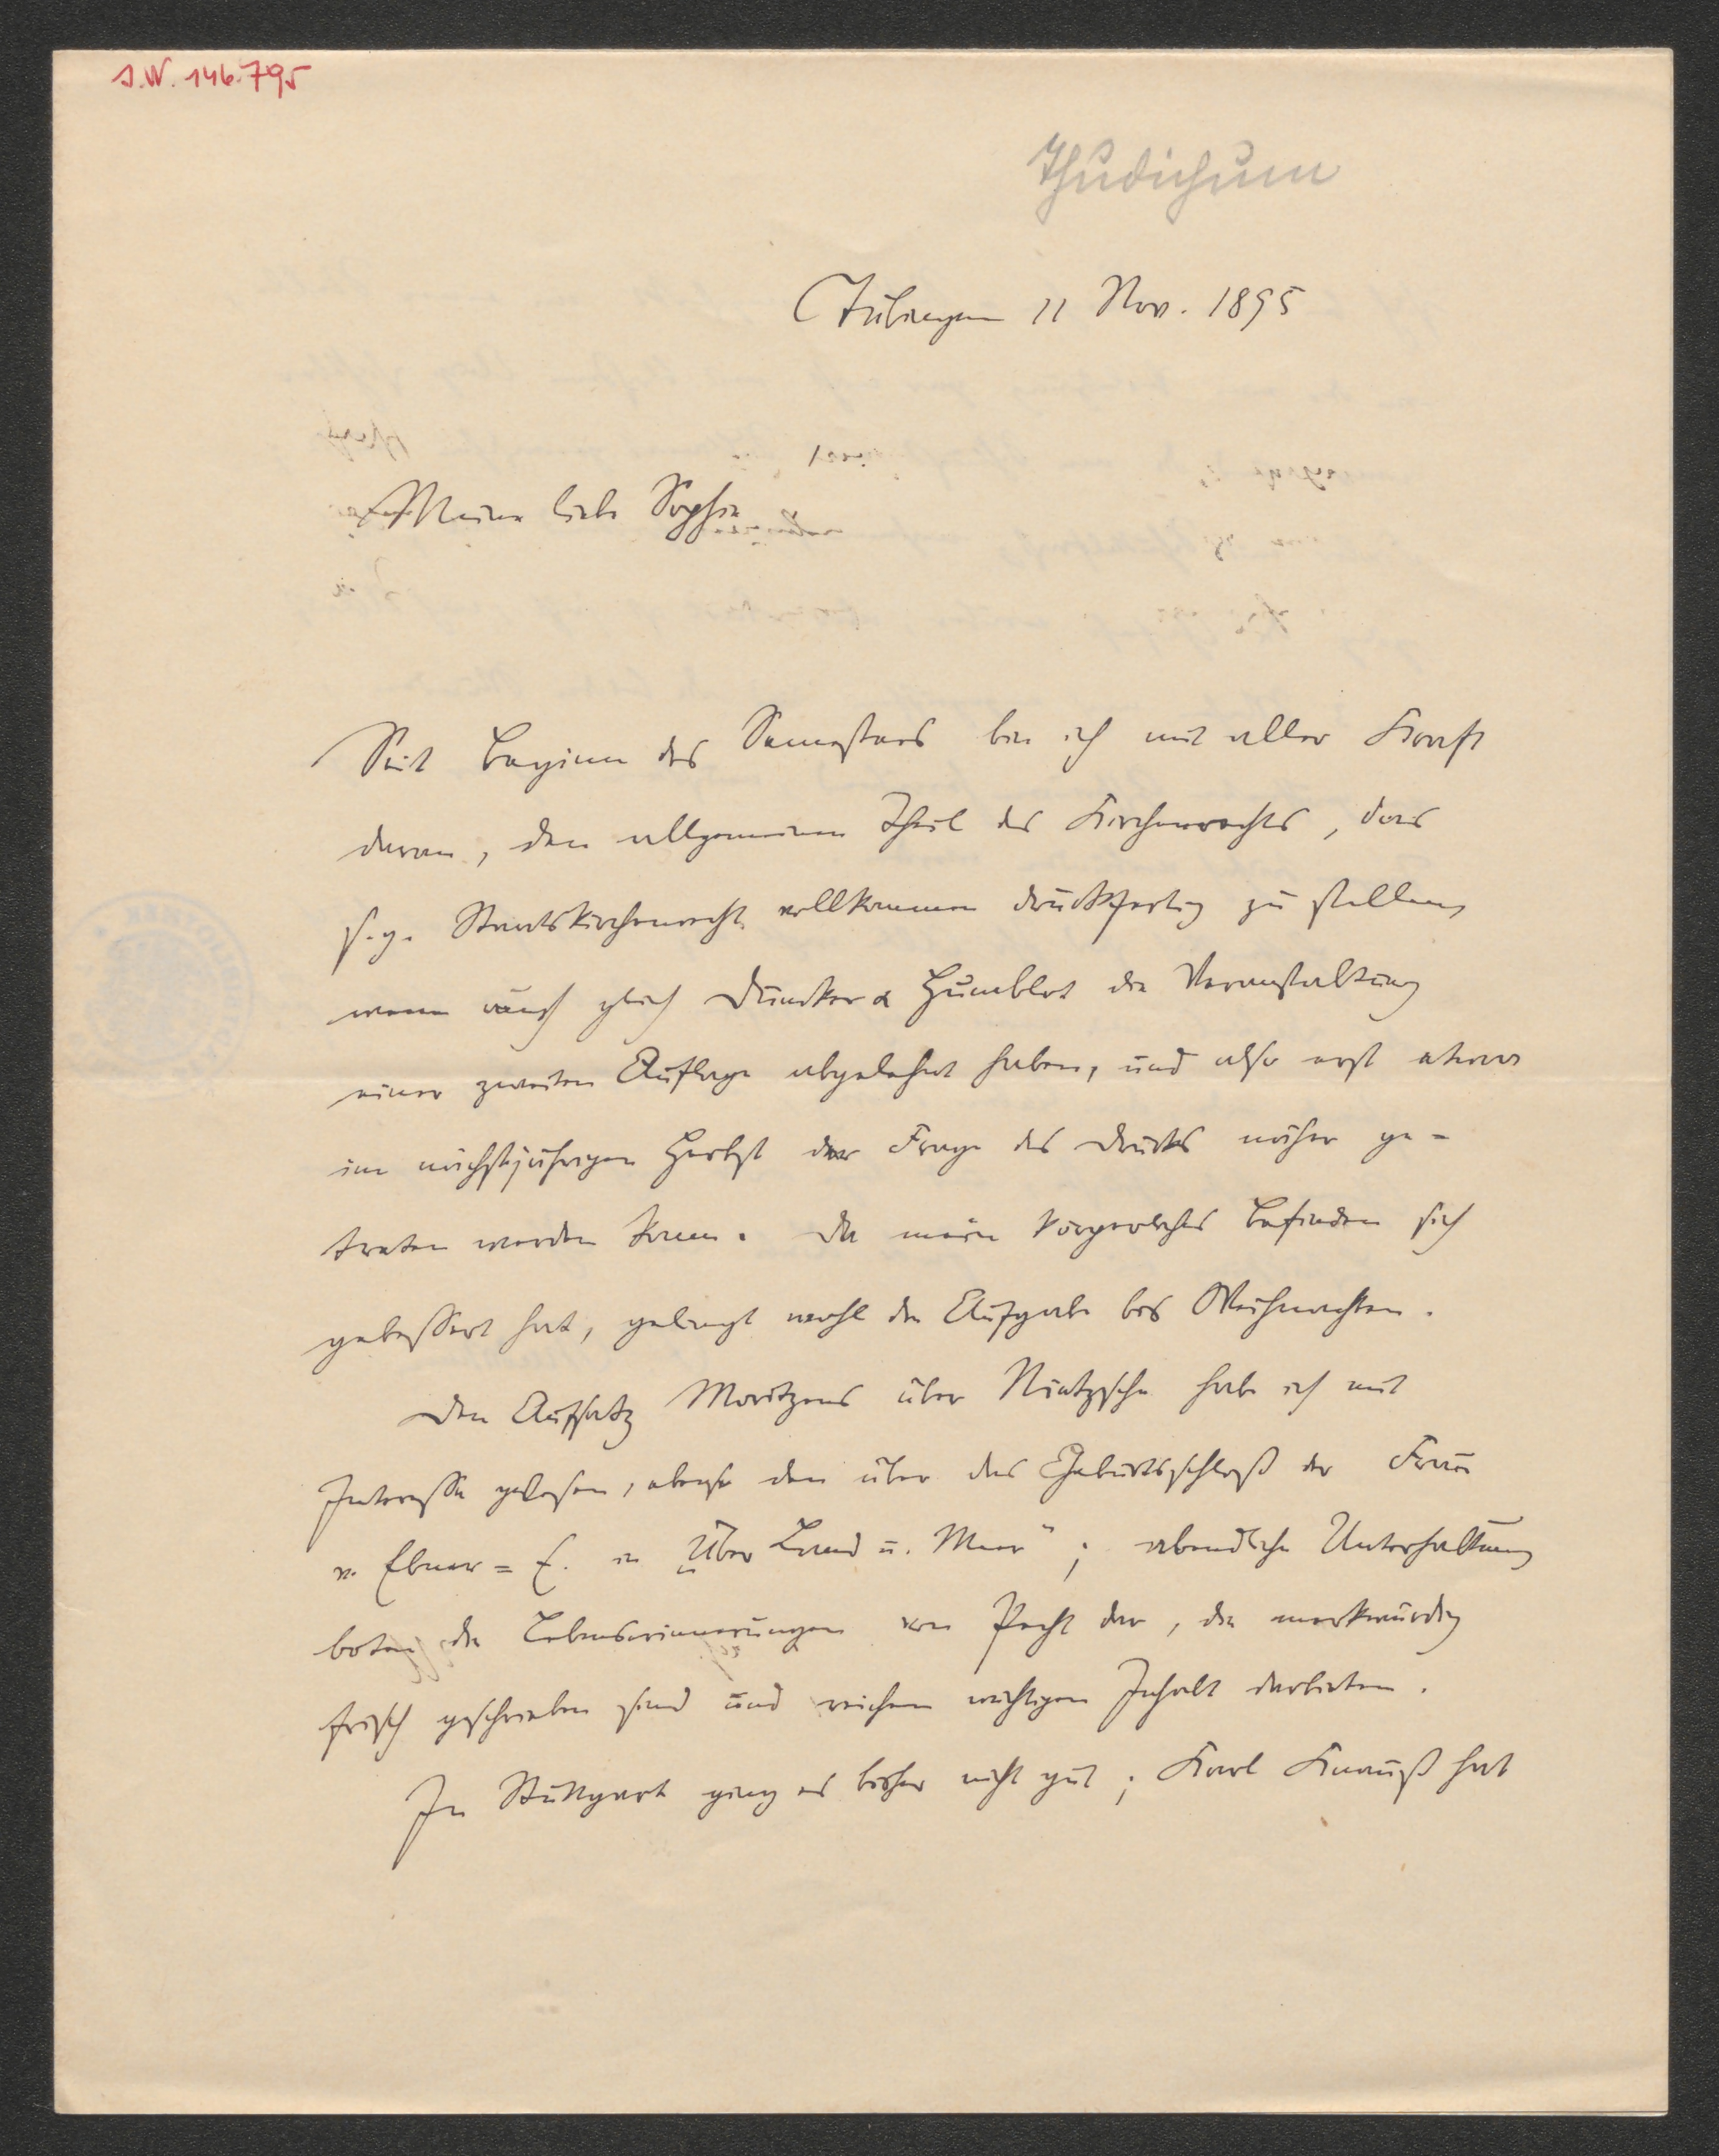 I.N. 146.795
Thudichum
Tübingen 11 Nov. 1895
Meine liebe Sophie
Seit Beginn des Semesters bin ich mit aller Kraft
daran, den allgemeinen Theil des Kirchenrechts, das
s.g. Staatskirchenrecht vollkommen druckfertig zu stellen,
wenn auch gleich Duncker & Humblot die Veranstaltung
einer zweiten Auflage abgelehnt haben, und also erst etwa
im nächstjährigen Herbst der Frage des Drucks näher ge=
treten werden kann. Da mein körperliches Befinden sich
gebessert hat, gelingt wohl die Aufgabe bis Weihnachten.
Den Aufsatz Moritzens über Nietzsche habe ich mit
Interesse gelesen, ebenso den über das Geburtsschloß der Frau
v. Ebner=E. in „Über Land u. Meer"; abendliche Unterhaltung
boten die Lebenserinnerungen von Pecht dar, die merkwürdig
frisch geschrieben sind und reichen wichtigen Inhalt darbieten.
In Stuttgart ging es bisher nicht gut; Karl Knauß hat